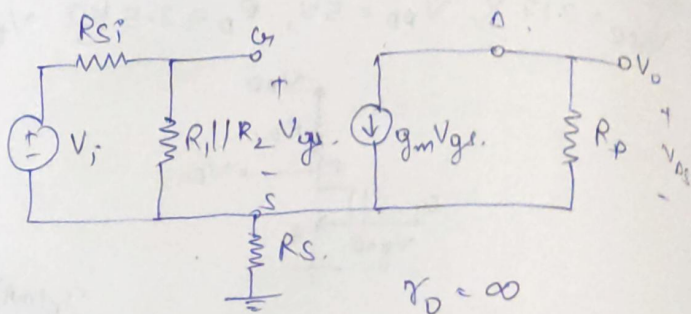 Rsi
G
D
OVo
+
+
Vi
R1//R2
Vgs.
gmVgs.
RD
+
VDS
-
-
S
RS.
rD = ∞